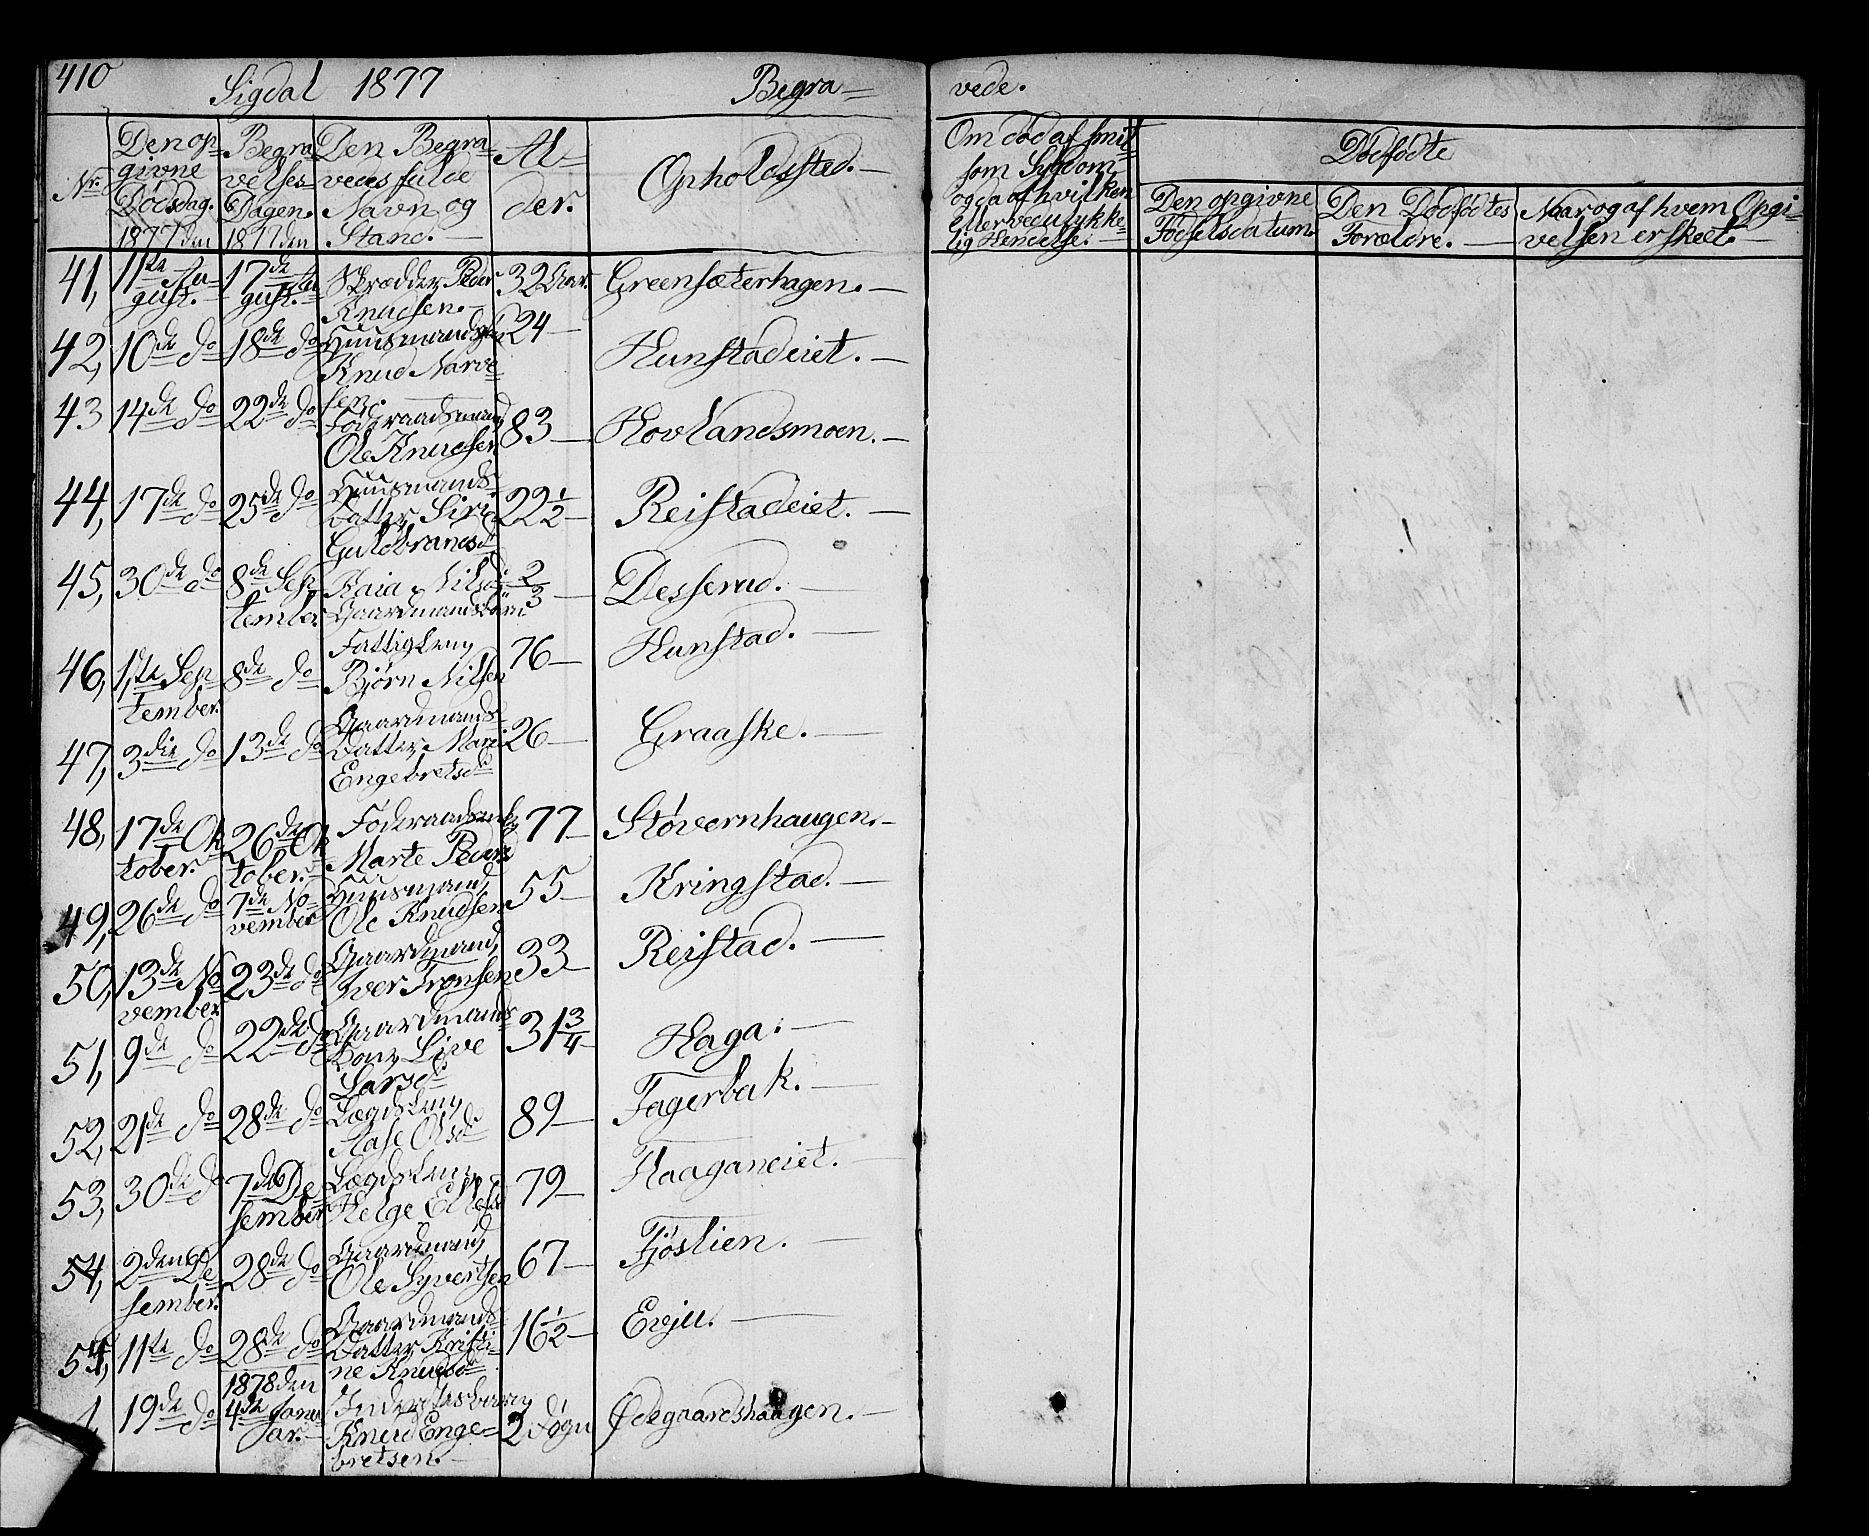 410 Sigdal 1877 Begra= vede.
Nr. Den op= givne Dødsdag. 1877 den
Begra velses= Dagen. 1877 den
Den Begra= vedes fulde Navn og Stand.
Al= der.
Opholdssted.
Om død af smit= som Sygdom og da af hvilken eller ved ulykke= lig Hendelse.
Dødfødte
Den opgivne Fødselsdatum.
Den Dødfødtes Forældre.
Naar og af hvem Opgi= velsen er skeet.
41, 11te Au= gust. 17de Au gust. Skrædder Peder Knudsen. 32 Aar. Greensæterhagen.
42, 10de do 18de do Huusmand Knud Narve= sen. 24 Hunstadeiet.
43 14de do 22de do Føderaadsmand Ole Knudsen 83 Hovlandsmoen.
44, 17de do 25de do Huusmands= datter Siri Guldbrandsd 22 1/2 Reistadeiet.
45, 30de do 8de Sep tember. Kaia Nilsd Gaardmandsbarn 2/3 Desserud.
46, 1ste Sep tember. 8de do Fattiglem Bjørn Nilsen 76 Hunstad.
47, 3die do 13de do Gaardmands= datter Mari Engebretsd 26 Graaske.
48, 17de Ok tober. 26de Ok tober. Føderaadsenke Marte Peders 77 Støvernhaugen.
49, 26de do 7de No= vember Huusmand Ole Knudsen 55 Kringstad.
50, 13de No vember. 23de do Gaardmand Iver Tronsen 33 Reistad.
51, 9de do 22de do Gaardmands Kone Live Larsd 31 3/4 Haga.
52, 21de do 28de do Lægdslem Aase Olsd 89 Fagerbak.
53, 30de do 7de De sember Lægdslem Helge 79 Haaganeiet.
54, 2den De sember. 28de do Gaardmand Ole Syvertsen 67 Fjøslien.
55, 11te do 28de do Gaardmands= datter Kristi= ne Knudsd 16 1/2 Evju.
1 19de do 1878 den 4de Janu ar. Inderstesbarn Knud Enge= bretsen. 2 Døgn Ødegaardshaugen.